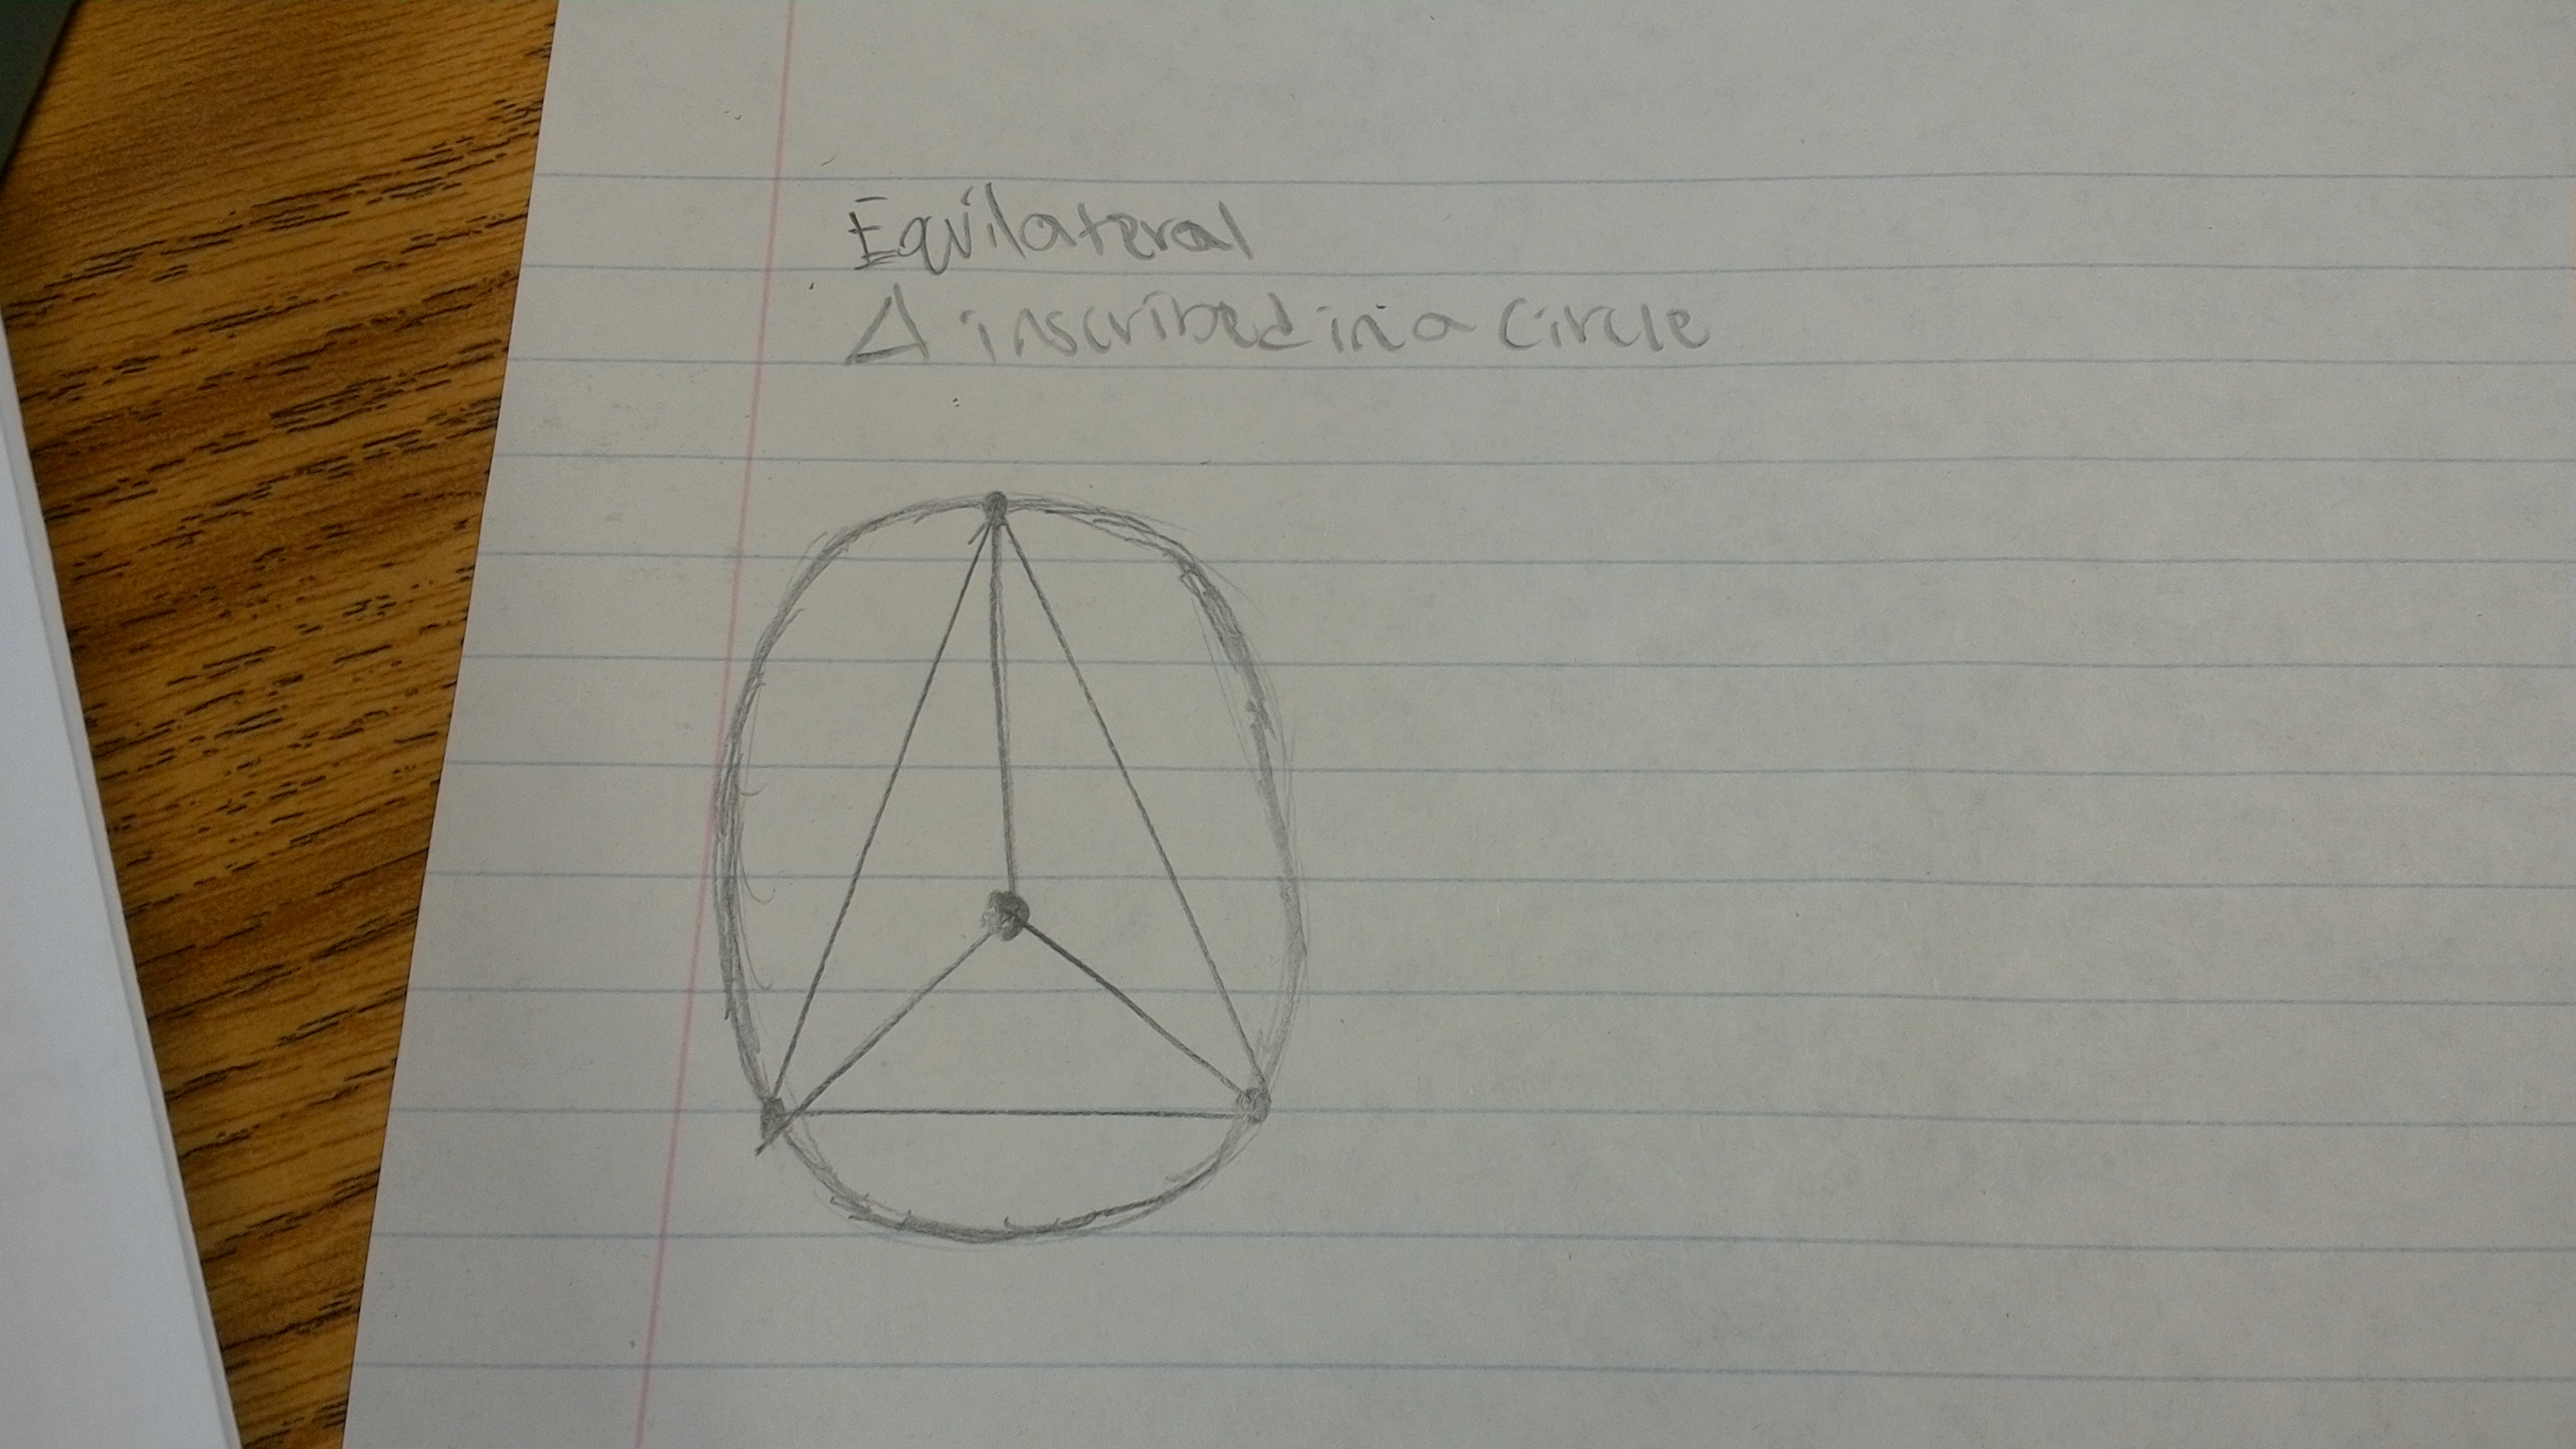 Equilateral
Δ inscribed in a circle